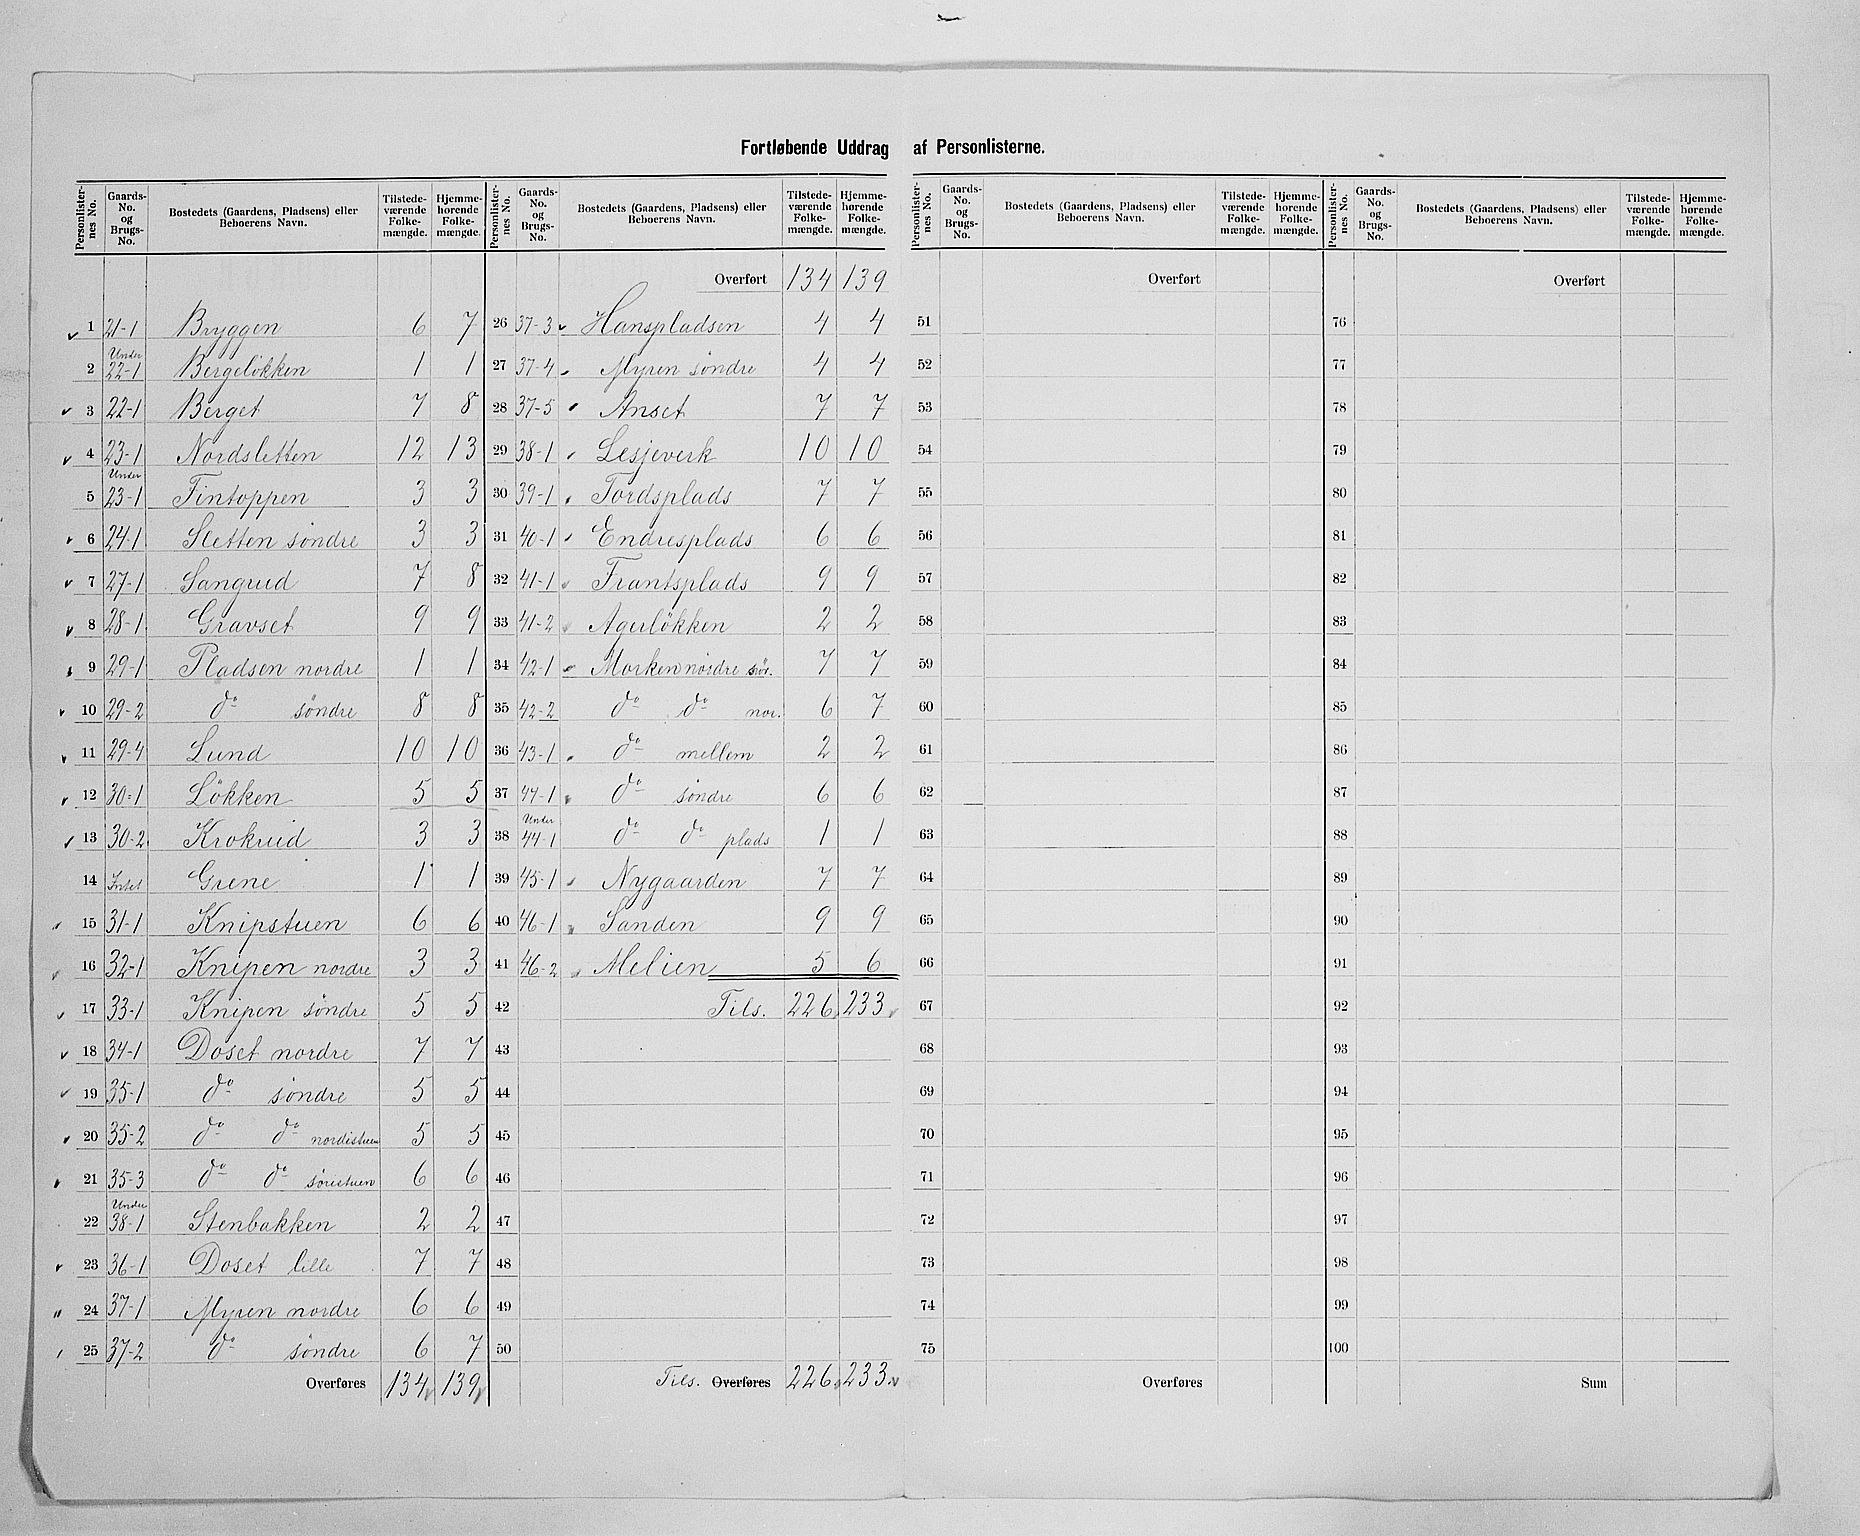 Fortløbende Uddrag af Personlisterne.
Personlister-nes No. | Gaards-No. og Brugs-No. | Bostedets (Gaardens, Pladsens) eller Beboerens Navn. | Tilstede-værende Folke-mængde. | Hjemme-hørende Folke-mængde.
1 21-1 Bryggen 6 7
2 Under 22-1 Bergeløkken 1 1
3 22-1 Berget 7 8
4 23-1 Nordsletten 12 13
5 Under 23-1 Fintoppen 3 3
6 24-1 Sletten søndre 3 3
7 27-1 Sangrud 7 8
8 28-1 Gravset 9 9
9 29-1 Pladsen nordre 1 1
10 29-2 do søndre 8 8
11 29-4 Lund 10 10
12 30-1 Løkken 5 5
13 30-2 Krokrud 3 3
14 Intet Grene 1 1
15 31-1 Knipstuen 6 6
16 32-1 Knipen nordre 3 3
17 33-1 Knipen søndre 5 5
18 34-1 Doset nordre 7 7
19 35-1 do søndre 5 5
20 35-2 do do nordistuen 5 5
21 35-3 do do sørestuen 6 6
22 Under 38-1 Stenbakken 2 2
23 36-1 Doset lille 7 7
24 37-1 Myren nordre 6 6
25 37-2 do søndre 6 7
Overføres 134 139
Personlister-nes No. | Gaards-No. og Brugs-No. | Bostedets (Gaardens, Pladsens) eller Beboerens Navn. | Tilstede-værende Folke-mængde. | Hjemme-hørende Folke-mængde.
Overført 134 139
26 37-3 Hanspladsen 4 4
27 37-4 Myren søndre 4 4
28 37-5 Anset 7 7
29 38-1 Lesjeverk 10 10
30 39-1 Tordsplads 7 7
31 40-1 Endresplads 6 6
32 41-1 Frantsplads 9 9
33 41-2 Agerløkken 2 2
34 42-1 Morken nordre sør. 7 7
35 42-2 do do nor. 6 7
36 43-1 do mellem 2 2
37 44-1 do søndre 6 6
38 Under 44-1 do do plads 1 1
39 45-1 Nygaarden 7 7
40 46-1 Sanden 9 9
41 46-2 Melien 5 6
42 Tils. 226 233
43
44
45
46
47
48
49
50
Tils. Overføres 226 233
Personlister-nes No. | Gaards-No. og Brugs-No. | Bostedets (Gaardens, Pladsens) eller Beboerens Navn. | Tilstede-værende Folke-mængde. | Hjemme-hørende Folke-mængde.
Overført
51
52
53
54
55
56
57
58
59
60
61
62
63
64
65
66
67
68
69
70
71
72
73
74
75
Overføres
Personlister-nes No. | Gaards-No. og Brugs-No. | Bostedets (Gaardens, Pladsens) eller Beboerens Navn. | Tilstede-værende Folke-mængde. | Hjemme-hørende Folke-mængde.
Overført
76
77
78
79
80
81
82
83
84
85
86
87
88
89
90
91
92
93
94
95
96
97
98
99
100
Sum